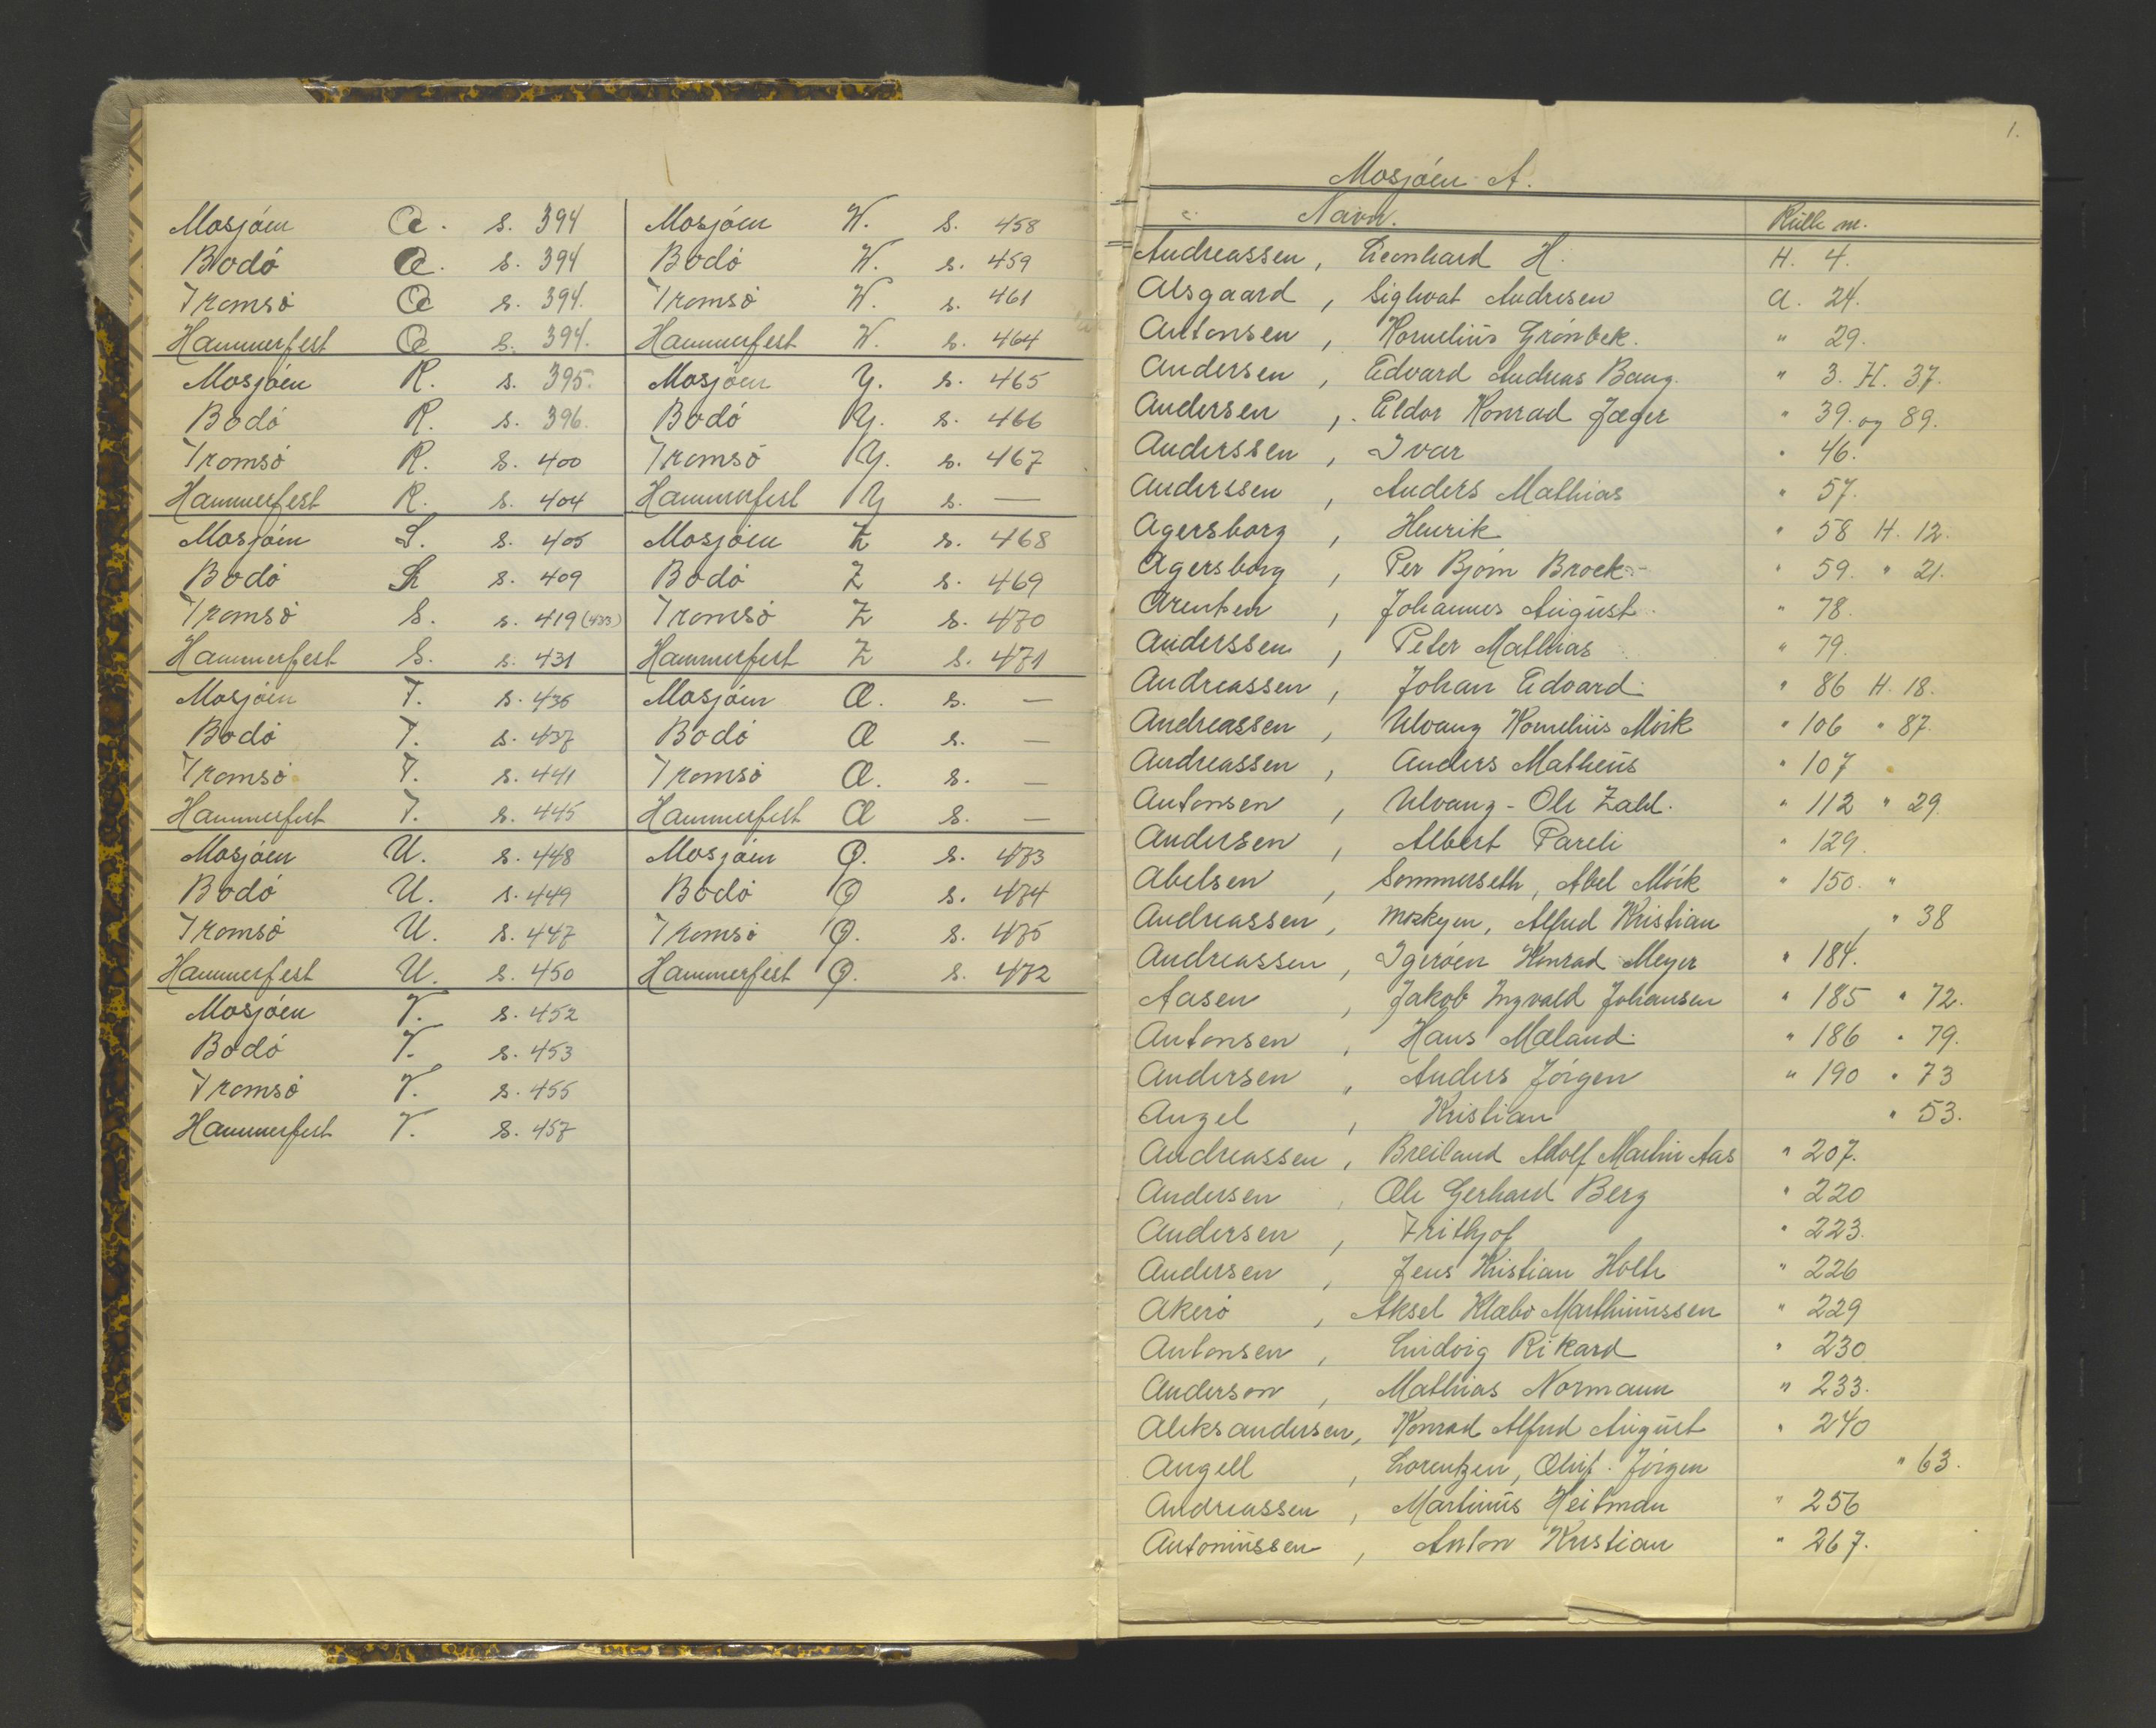 Mosjöen Q. s. 394
Bodö Q. s. 394
Tromsö Q s. 394.
Hammerfest Q s. 394.
Mosjöen R. s. 395.
Bodö R. s. 396.
Tromsö R. s. 400
Hammerfest R. s. 404
Mosjöen S. s. 405
Bodö S s. 409
Tromsö S. s. 419 (423)
Hammerfest S. s. 431
Mosjöen T. s. 436
Bodö T. s. 437
Tromsö T. s. 441
Hammerfest T. s. 445
Mosjöen U. s. 448
Bodö U. s. 449
Tromsö U. s. 447
Hammerfest U. s. 450
Mosjöen V. s. 452
Bodö V. s. 453
Tromsö V. s. 455
Hammerfest V. s. 457
Mosjöen W. s. 458
Bodö W. s. 459
Tromsö W. s. 461
Hammerfest W. s. 464
Mosjöen Y. s. 465
Bodö Y. s. 466
Tromsö Y. s. 467
Hammerfest Y s. —
Mosjöen Z s. 468
Bodö Z s. 469
Tromsö Z s. 470
Hammerfest Z s. 471
Mosjöen Æ. s. —
Bodö Æ s. —
Tromsö Æ. s. —
Hammerfest Æ s. —
Mosjöen Ø. s. 473
Bodö Ø s. 474
Tromsö Ø. s. 475
Hammerfest Ø. s. 472
1.
Mosjöen A.
Navn. Rulle nr.
Andreassen, Leonhard H. H. 4.
Alsgaard, Sighvat Andresen A. 24.
Antonsen, Kornelius Grönbek. " 29.
Andersen, Edvard Andreas Bang. " 3. H. 37.
Andersen, Eldor Konrad Jæger " 39. og 89.
Anderssen, Ivar " 46.
Anderssen, Anders Mathias " 57.
Agersborg, Henrik " 58 H. 12.
Agersborg, Per Björn Brock " 59. " 21.
Arentzen, Johannes August " 78.
Anderssen, Peter Mathias " 79.
Andreassen, Johan Edvard " 86 H. 18.
Andreassen, Ulvang Kornelius Mörk " 106 " 87.
Andreassen, Anders Matheus " 107
Antonsen, Ulvang - Ole Zahl. " 112 " 29.
Andersen, Albert Pareli " 129.
Abelsen, Sommerseth, Abel Mörk " 150. "
Andreassen, Alfred Kristian " 38
Andreassen, Igeröen Konrad Meyer " 184.
Aasen, Jakob Ingvald Johansen " 185 " 72.
Antonsen, Hans Mæland " 186 " 79.
Andersen, Anders Jörgen " 190 " 73
Angel, Kristian " 53.
Andreassen, Breiland Adolf Martin Aas " 207.
Andersen, Ole Gerhard Berg " 220
Andersen, Frithjof " 223.
Andersen, Jens Kristian Holte " 226
Akerö, Aksel Klæbo Marthinussen " 229
Antonsen, Ludvig Rikard " 230
Anderson, Mathias Normann " 233.
Aleksandersen, Konrad Alfred August " 240
Angell, Lorentzen, Oluf Jörgen " 63.
Andreassen, Martinus Heitman " 256
Antoniussen, Anton Kristian " 267.